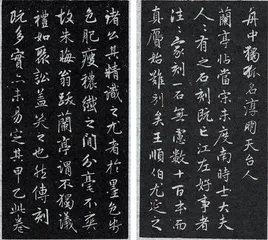 舟中獨孤名淳朋天台人
蘭亭帖當宋未度南時士大夫
人人有之石刻既亡江左好事者
往往家刻一石無慮數十百本而
真贋始難別矣王順伯尤延之
諸公其精識之尤者於墨色紙
色肥瘦穠纖之間分毫不爽
故朱晦翁跋蘭亭謂不獨議
禮如聚訟蓋笑之也然傳刻
既多實亦未易定其甲乙此卷